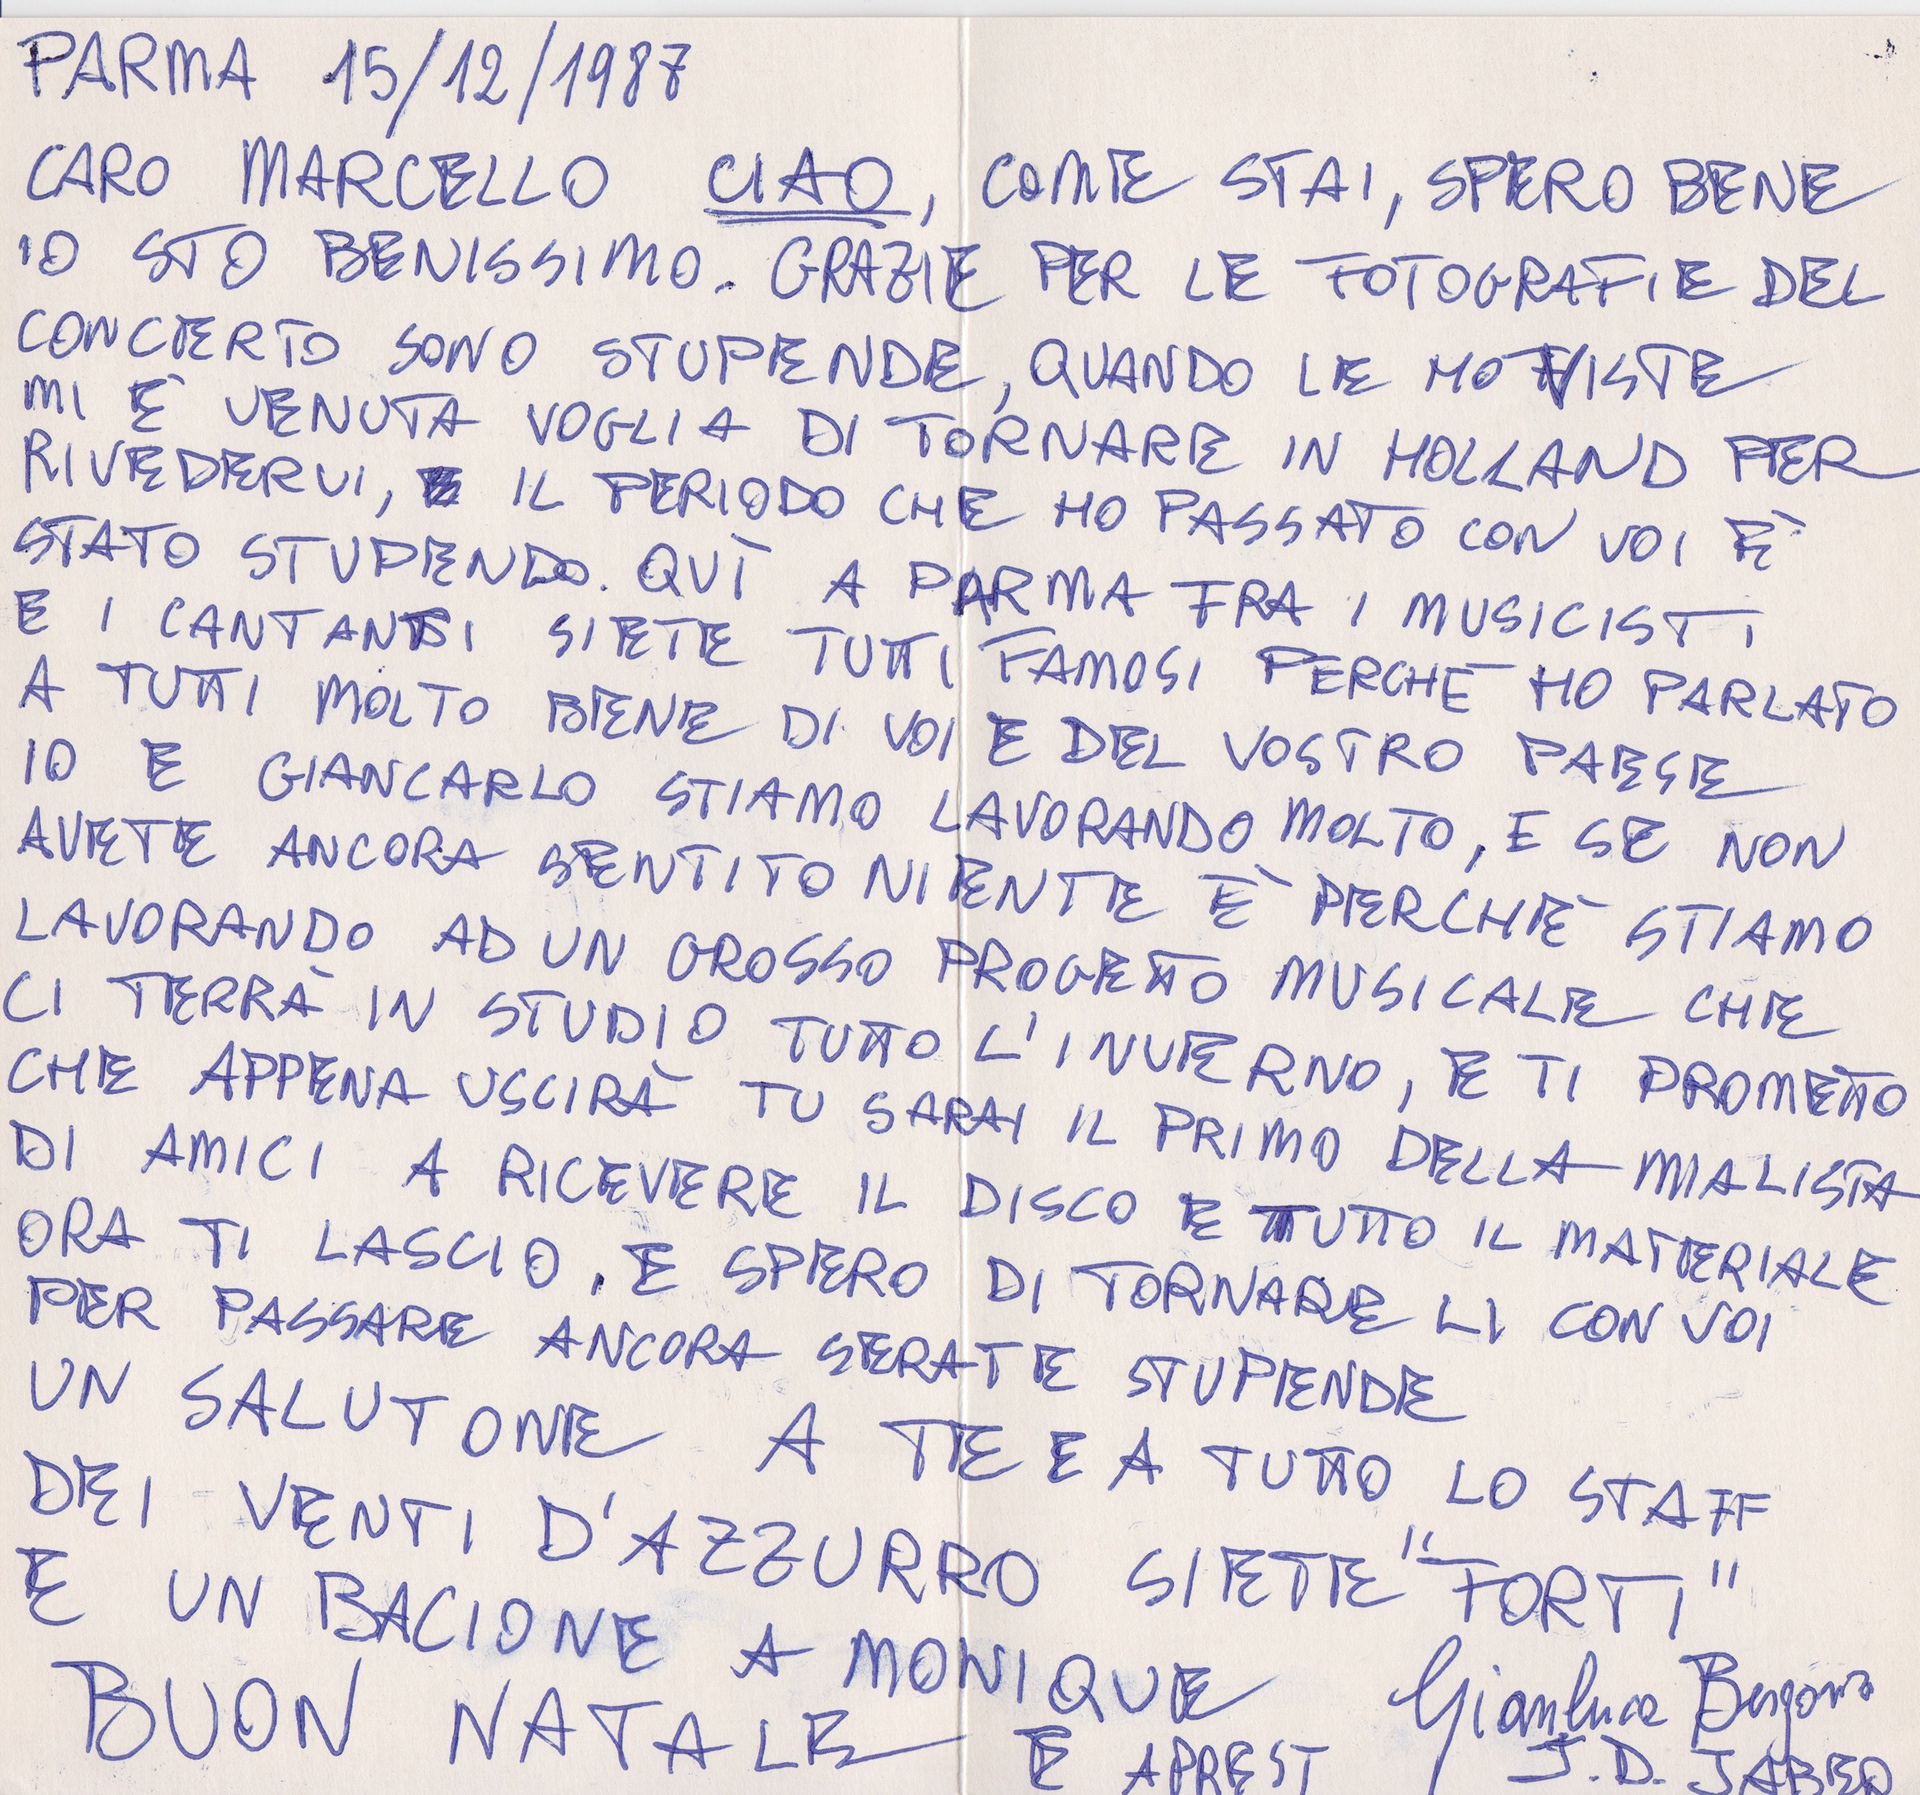 PARMA 15/12/1987
CARO MARCELLO CIAO, COME STAI, SPERO BENE
IO STO BENISSIMO. GRAZIE PER LE FOTOGRAFIE DEL
CONCERTO SONO STUPENDE, QUANDO LE HO VISTE
MI È VENUTA VOGLIA DI TORNARE IN HOLLAND PER
RIVEDERVI, IL PERIODO CHE HO PASSATO CON VOI È
STATO STUPENDO. QUÌ A PARMA FRA I MUSICISTI
E I CANTANTI SIETE TUTTI FAMOSI PERCHÈ HO PARLATO
A TUTTI MOLTO BENE DI VOI E DEL VOSTRO PAESE
IO E GIANCARLO STIAMO LAVORANDO MOLTO, E SE NON
AVETE ANCORA SENTITO NIENTE È PERCHÈ STIAMO
LAVORANDO AD UN GROSSO PROGETTO MUSICALE CHE
CI TERRÀ IN STUDIO TUTTO L'INVERNO, E TI PROMETTO
CHE APPENA USCIRÀ TU SARAI IL PRIMO DELLA MIA LISTA
DI AMICI A RICEVERE IL DISCO E TUTTO IL MATERIALE
ORA TI LASCIO, E SPERO DI TORNARE LI CON VOI
PER PASSARE ANCORA SERATE STUPENDE
UN SALUTONE A TE E A TUTTO LO STAFF
DEI VENTI D'AZZURRO SIETE "FORTI"
E UN BACIONE A MONIQUE
BUON NATALE E APREST
Gianluca Bergonzi
J.D. JABER